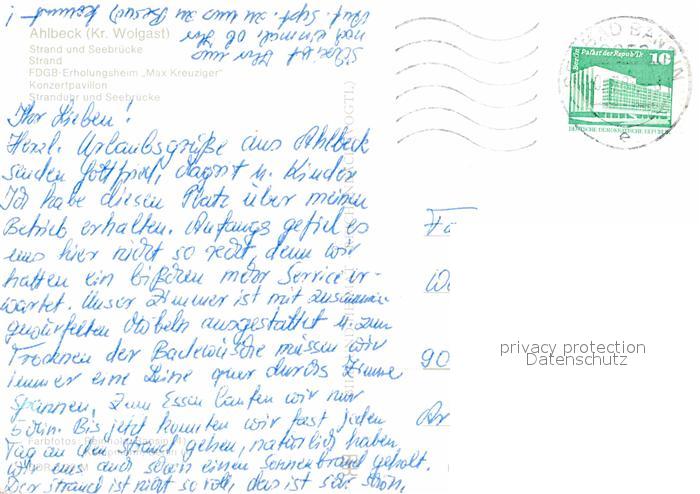 Ahlbeck (Kr. Wolgast)
Strand und Seebrücke
Strand
FDGB-Erholungsheim „Max Kreuziger"
Konzertpavillon
Stranduhr und Seebrücke
Ihr Lieben!
Herzl. Urlaubsgrüße aus Ahlbeck
senden Gottfried, Dagrit u. Kinder
Ich habe diesen Platz über meinen
Betrieb erhalten. Anfangs gefiel es
uns hier nicht so recht, denn wir
hatten ein bißchen mehr Service er-
wartet. Unser Zimmer ist mit zusammen
gewürfelten Möbeln ausgestattet u. zum
Trocknen der Badewäsche müssen wir
immer eine Leine quer durchs Zimmer
spannen. Zum Essen laufen wir nur
5 Min. Bis jetzt konnten wir fast jeden
Tag an den Strand gehen, natürlich haben
wir uns auch schon einen Sonnenbrand geholt.
Der Strand ist nicht so voll, das ist sehr schön,
Schreibt Ihr uns
noch einmal, ob Ihr
Anf. Sept. zu uns zu Besuch kommt!
Farbfotos:
Berlin, Palast der Republik
10
DEUTSCHE DEMOKRATISCHE REPUBLIK
e
90
privacy protection
Datenschutz